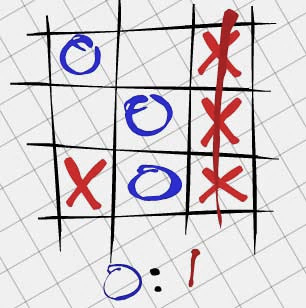 O X
O X
X O X
O : 1